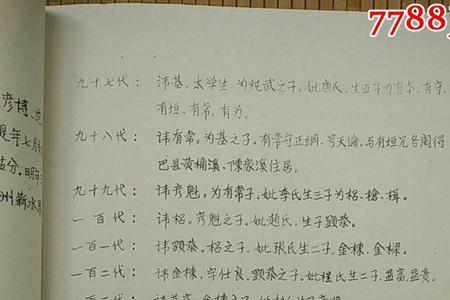 7788
九十七代：讳基。太学生 为纯武之子。妣唐氏。生五子为有本、有守、
有垣、有常、有为。
九十八代：讳有常。为基之子。有常守正纲、号天倫。与有垣兄各阄得
巴县黄桷溪、陳家溪住居。
九十九代：讳彦魁。为有常子。妣李氏生三子为梠、槍、楫。
一百代：讳梠。彦魁之子。妣赵氏，生子顕忝。
一百一代：讳顕忝。梠之子、妣张氏生二子，金棟、金樑。
一百二代：讳金棟，字仕良、顕忝之子、妣程氏、生二子、益富、益贵。
彦博、范
是年七月
益分。明年
州蕲水